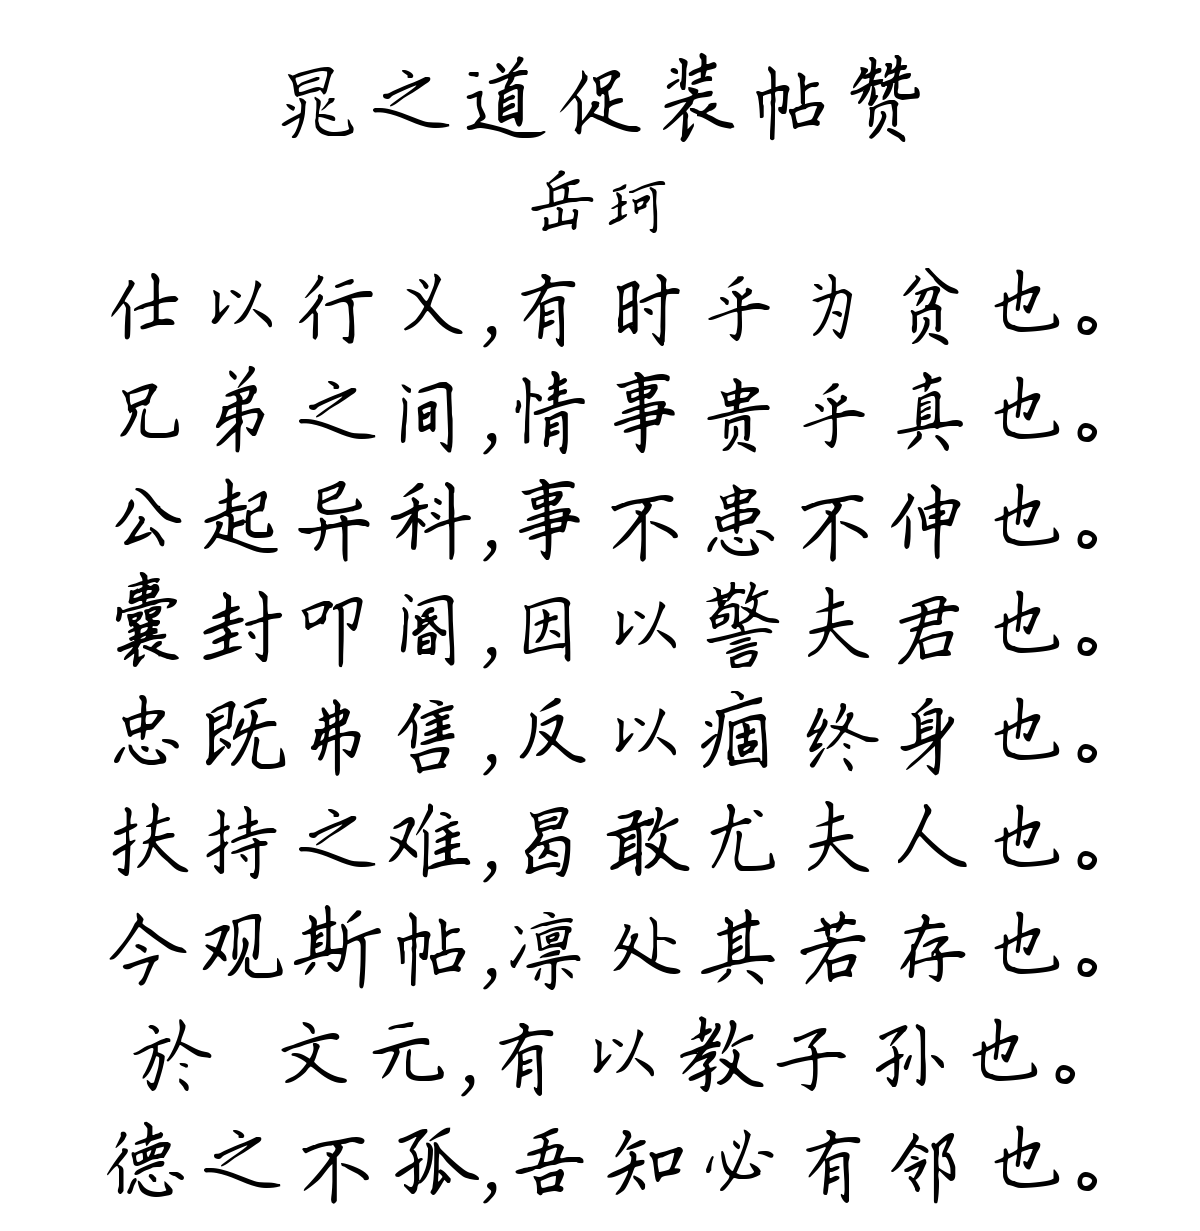 晁之道促装帖赞
岳珂
仕以行义,有时乎为贫也。
兄弟之间,情事贵乎真也。
公起异科,事不患不伸也。
囊封叩阍,因以警夫君也。
忠既弗售,反以痼终身也。
扶持之难,曷敢尤夫人也。
今观斯帖,凛处其若存也。
於 文元,有以教子孙也。
德之不孤,吾知必有邻也。